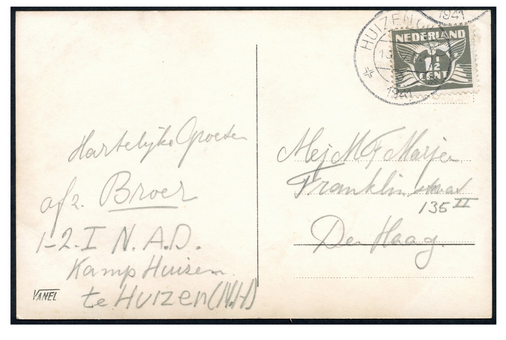 HUIZEN
1941
NEDERLAND
1½
CENT
1941
Hartelijke Groeten
afz. Broer
1-2-I N.A.D.
Kamp Huizen
te Huizen (N.H)
VANEL
Mej M F Meijer
Franklinstraat
135 II
Den Haag